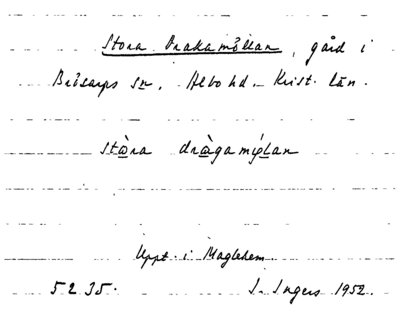 Stora Drakamöllan, gård i
Brösarps sn, Albo hd. Krist. län.
stòra dràgamø̀lan
Uppt. i Maglehem.
5235. I. Ingers 1952.